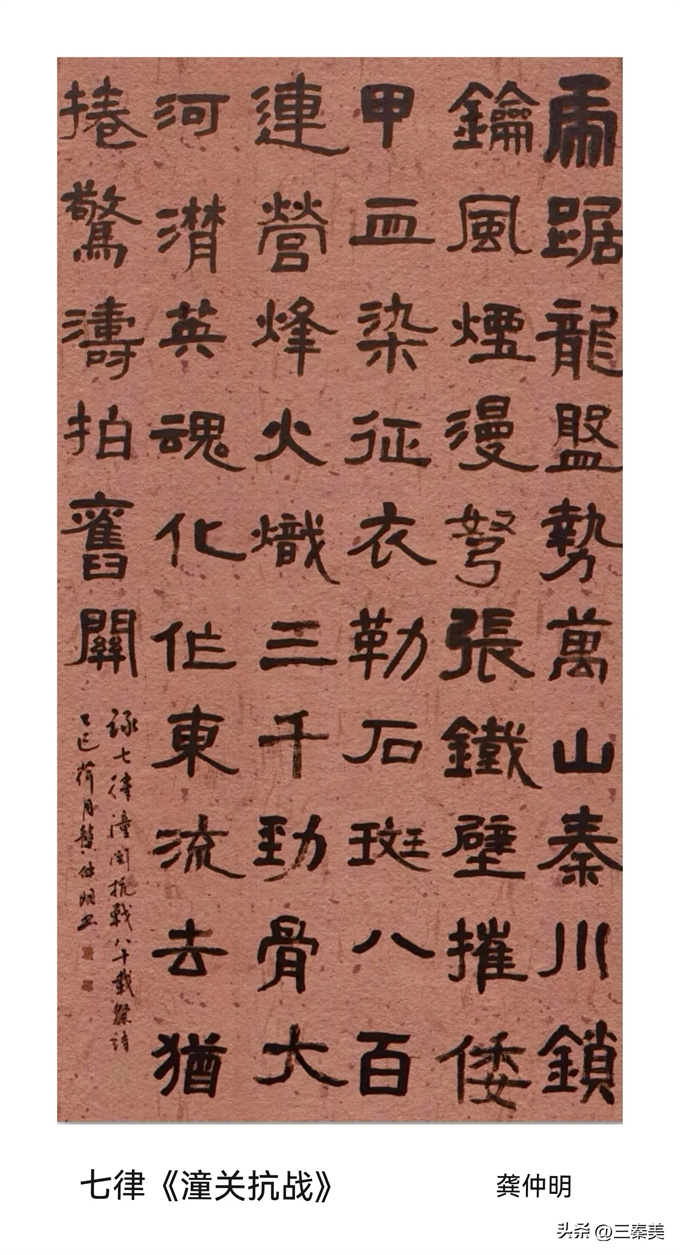 虎踞龍盤勢萬山秦川鎖
鑰風煙漫弩張鐵壁摧倭
甲血染征衣勒石斑八百
連營烽火熾三千勁骨大
河潸英魂化作東流去猶
捲驚濤拍舊關
録七律潼関抗戰八十載祭詩
乙巳荷月龔仲明书
七律《潼关抗战》 龚仲明
头条 @三秦美